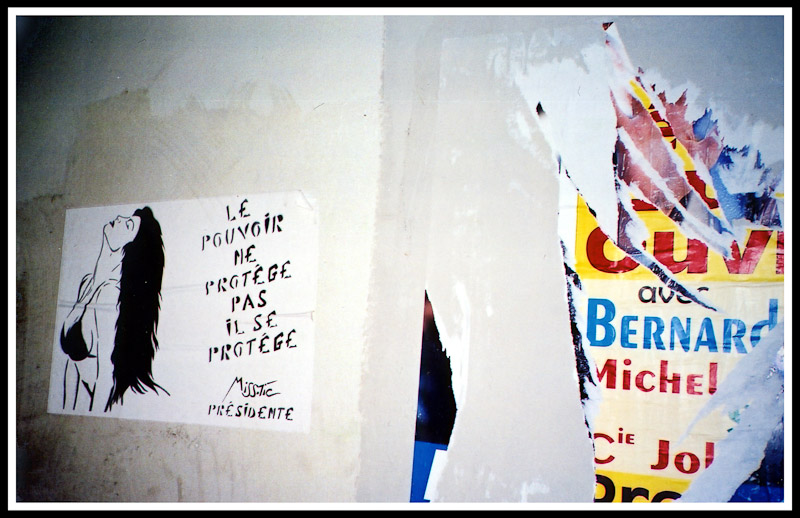 LE
POUVOIR
NE
PROTÈGE
PAS
IL SE
PROTÉGE
MISS.TIC
PRÉSIDENTE
ouv
avec
BERNARd
Michel
Cie Jol